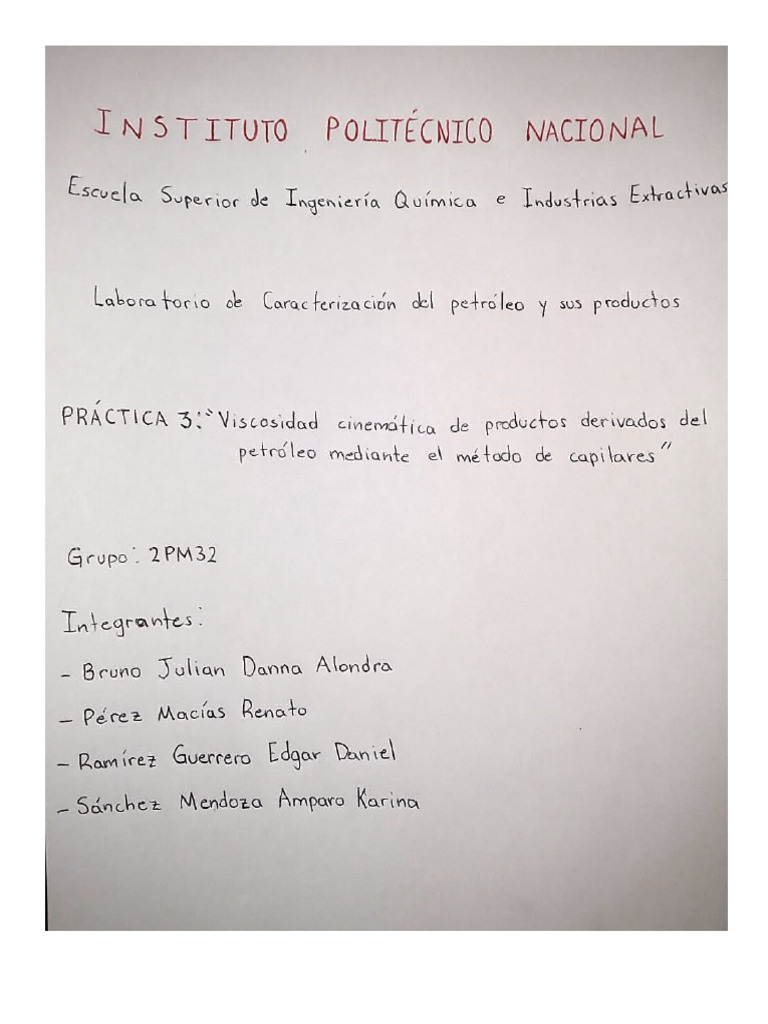 INSTITUTO POLITÉCNICO NACIONAL
Escuela Superior de Ingeniería Química e Industrias Extractivas
Laboratorio de Caracterización del petróleo y sus productos
PRÁCTICA 3: "Viscosidad cinemática de productos derivados del
petróleo mediante el método de capilares"
Grupo: 2PM32
Integrantes:
- Bruno Julian Danna Alondra
- Pérez Macías Renato
- Ramírez Guerrero Edgar Daniel
- Sánchez Mendoza Amparo Karina